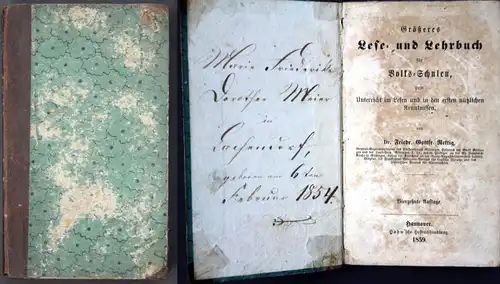 Marie Friederike
Dorothee Meier
in
Lachendorf,
geboren am 6ten
Februar 1854.
Größeres
Lese- und Lehrbuch
für
Volks-Schulen,
zum
Unterricht im Lesen und in den ersten nützlichen
Kenntnissen,
von
Dr. Friedr. Gottse. Rettig,
Vierzehnte Auflage.
Hannover.
Hahn'sche Hofbuchhandlung.
1859.